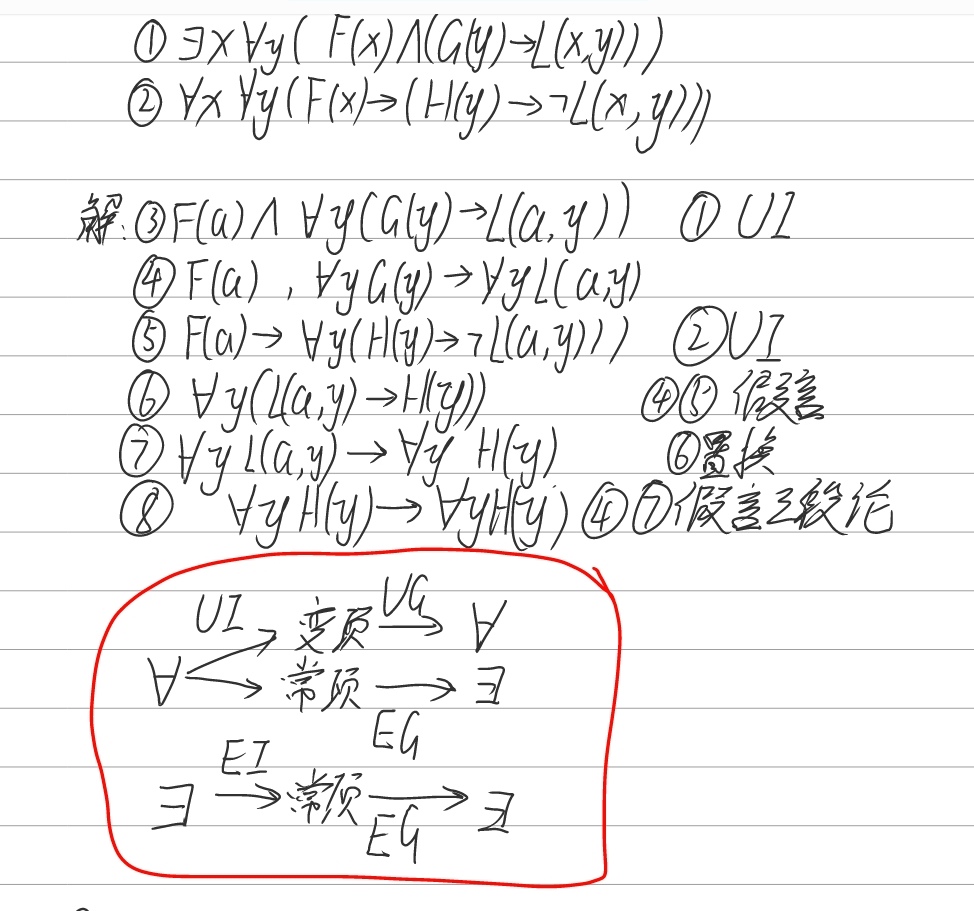 ① ∃x∀y(F(x)∧(G(y)→L(x,y)))
② ∀x∀y(F(x)→(H(y)→¬L(x,y)))
解:③F(a)∧∀y(G(y)→L(a,y)) ①UI
④F(a),∀yG(y)→∀yL(a,y)
⑤F(a)→∀y(H(y)→¬L(a,y))) ②UI
⑥∀y(L(a,y)→H(y)) ④⑤假言
⑦∀yL(a,y)→∀y H(y) ⑥置换
⑧∀yH(y)→∀yH(y) ④⑦假言三段论
UI 变项 UG→ ∀
∀ 常项 → ∃
EG
EI
∃ → 常项 → ∃
EG